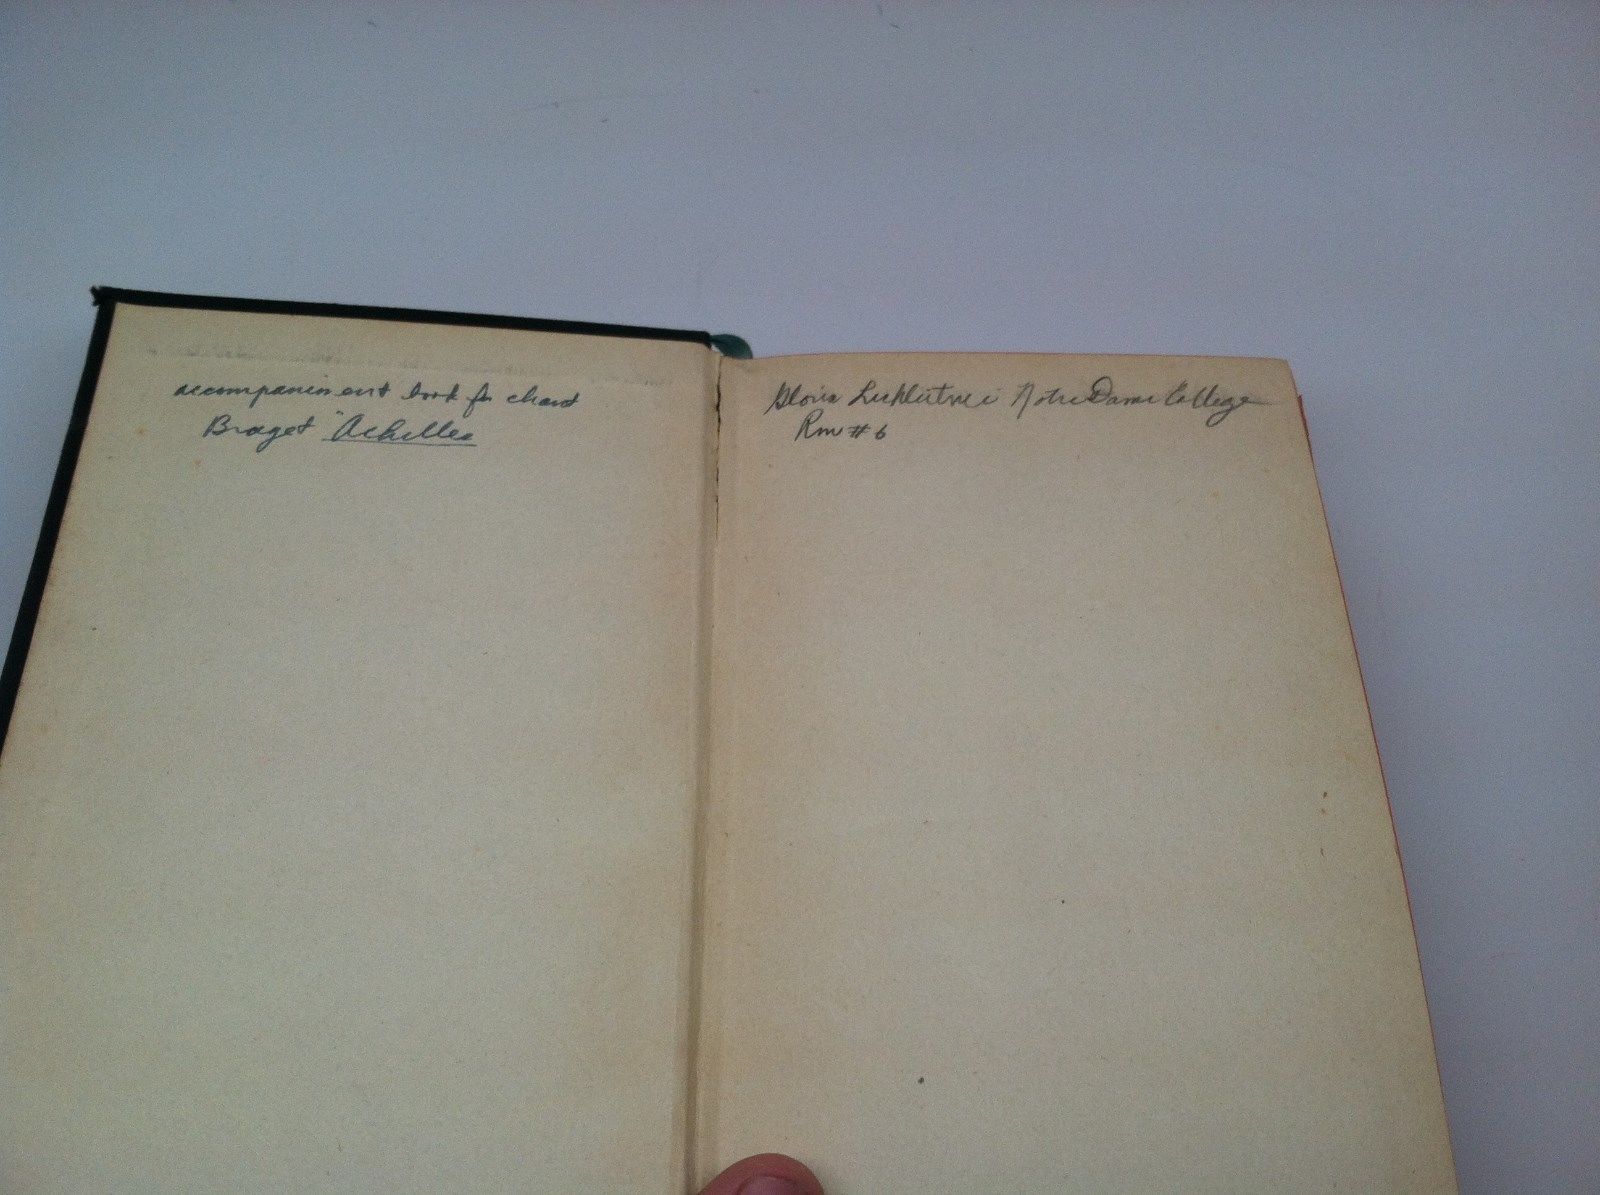 accompaniment book for chant
Braget "Achilles
Gloria Notre Dame College
Rm # 6